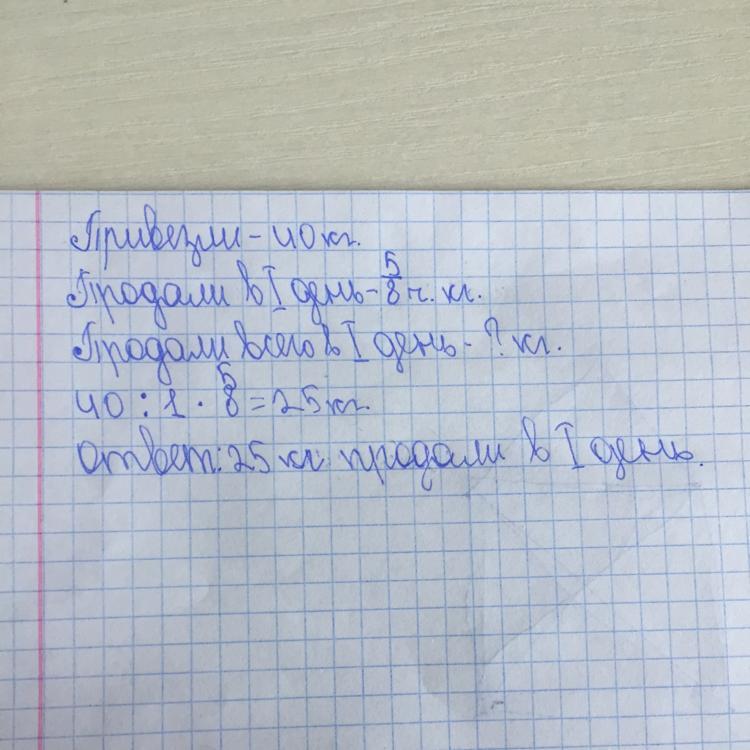 Привезли - 40 кг.
Продали в I день - 5/8 ч. кг.
Продали всего в I день - ? кг.
40 : 1 · 5/8 = 25 кг.
Ответ: 25 кг продали в I день.